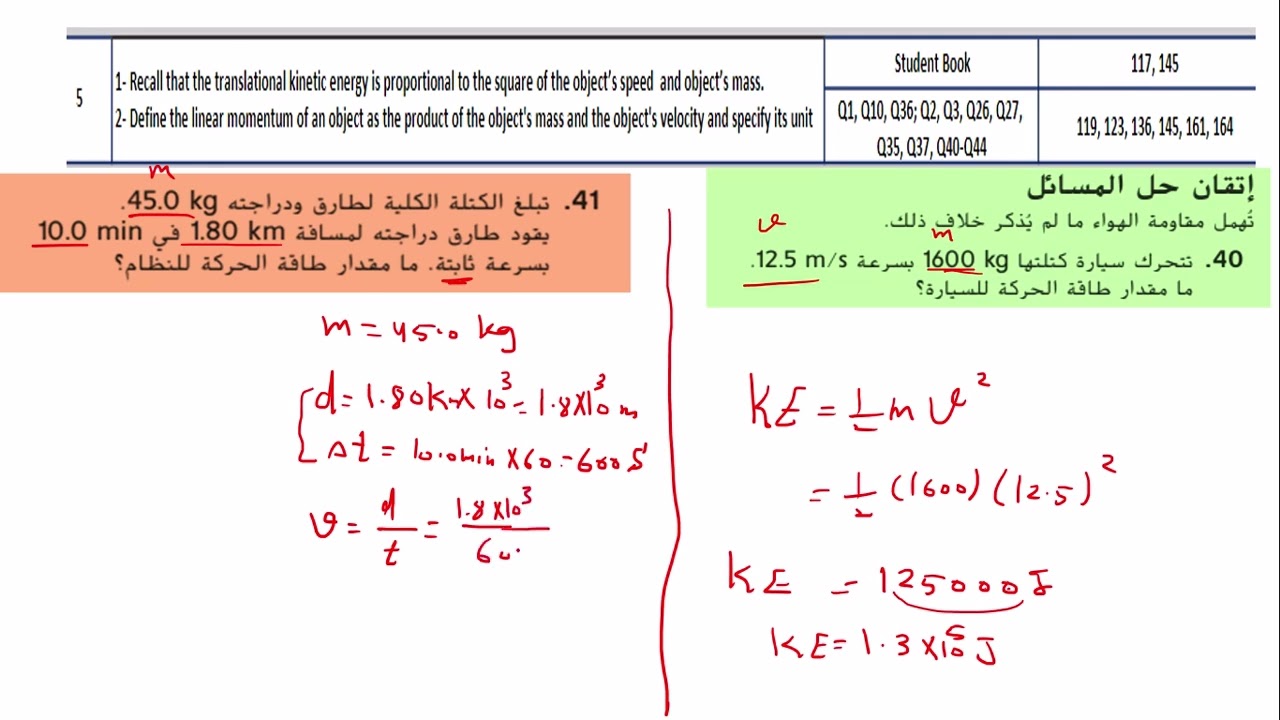 5
1- Recall that the translational kinetic energy is proportional to the square of the object's speed and object's mass.
2- Define the linear momentum of an object as the product of the object's mass and the object's velocity and specify its unit
Student Book
117, 145
Q1, Q10, Q36; Q2, Q3, Q26, Q27,
Q35, Q37, Q40-Q44
119, 123, 136, 145, 161, 164
إتقان حل المسائل
تُهمل مقاومة الهواء ما لم يُذكر خلاف ذلك.
v
m
40. تتحرك سيارة كتلتها 1600 kg بسرعة 12.5 m/s.
ما مقدار طاقة الحركة للسيارة؟
KE = 1/2 m v²
= 1/2 (1600) (12.5)²
KE = 125000 J
KE = 1.3 × 10⁵ J
m
41. تبلغ الكتلة الكلية لطارق ودراجته 45.0 kg.
يقود طارق دراجته لمسافة 1.80 km في 10.0 min
بسرعة ثابتة. ما مقدار طاقة الحركة للنظام؟
m = 45.0 kg
d = 1.80 km × 10³ = 1.8 × 10³ m
Δt = 10.0 min × 60 = 600 S
v = d/t = 1.8 × 10³ / 600